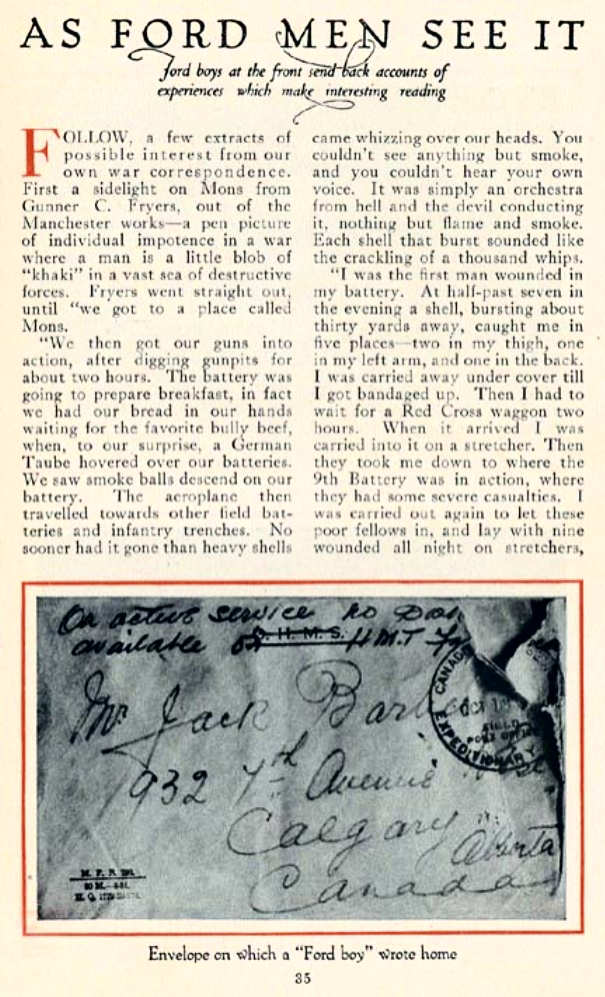 AS FORD MEN SEE IT
Ford boys at the front send back accounts of
experiences which make interesting reading
FOLLOW, a few extracts of
possible interest from our
own war correspondence.
First a sidelight on Mons from
Gunner C. Fryers, out of the
Manchester works—a pen picture
of individual impotence in a war
where a man is a little blob of
"khaki" in a vast sea of destructive
forces. Fryers went straight out,
until "we got to a place called
Mons.
"We then got our guns into
action, after digging gunpits for
about two hours. The battery was
going to prepare breakfast, in fact
we had our bread in our hands
waiting for the favorite bully beef,
when, to our surprise, a German
Taube hovered over our batteries.
We saw smoke balls descend on our
battery. The aeroplane then
travelled towards other field bat-
teries and infantry trenches. No
sooner had it gone than heavy shells
came whizzing over our heads. You
couldn't see anything but smoke,
and you couldn't hear your own
voice. It was simply an orchestra
from hell and the devil conducting
it, nothing but flame and smoke.
Each shell that burst sounded like
the crackling of a thousand whips.
"I was the first man wounded in
my battery. At half-past seven in
the evening a shell, bursting about
thirty yards away, caught me in
five places—two in my thigh, one
in my left arm, and one in the back.
I was carried away under cover till
I got bandaged up. Then I had to
wait for a Red Cross waggon two
hours. When it arrived I was
carried into it on a stretcher. Then
they took me down to where the
9th Battery was in action, where
they had some severe casualties. I
was carried out again to let these
poor fellows in, and lay with nine
wounded all night on stretchers,
On active service no
available on H.M.T
O.H.M.S.
Mr Jack
932 7th Avenue
Calgary
Alberta
Canada
CANAD
EXPEDITIONARY
OCT
FIELD
POST OFFICE
M. F. B.
50 M.
H. Q. 1772
Envelope on which a "Ford boy" wrote home
35